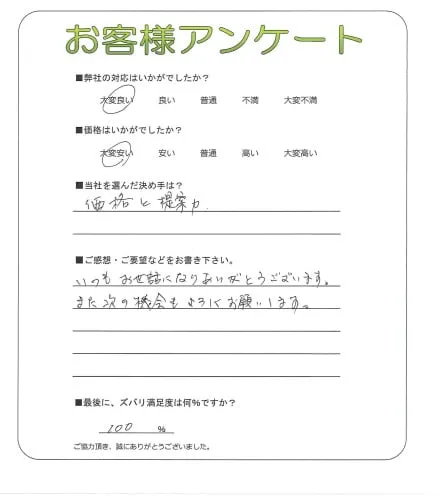 お客様アンケート
■弊社の対応はいかがでしたか？
大変良い 良い 普通 不満 大変不満
■価格はいかがでしたか？
大変安い 安い 普通 高い 大変高い
■当社を選んだ決め手は？
価格と提案力
■ご感想・ご要望などをお書き下さい。
いつもお世話になりありがとうございます。
また次の機会もよろしくお願いします。
■最後に、ズバリ満足度は何%ですか？
100 %
ご協力頂き、誠にありがとうございました。